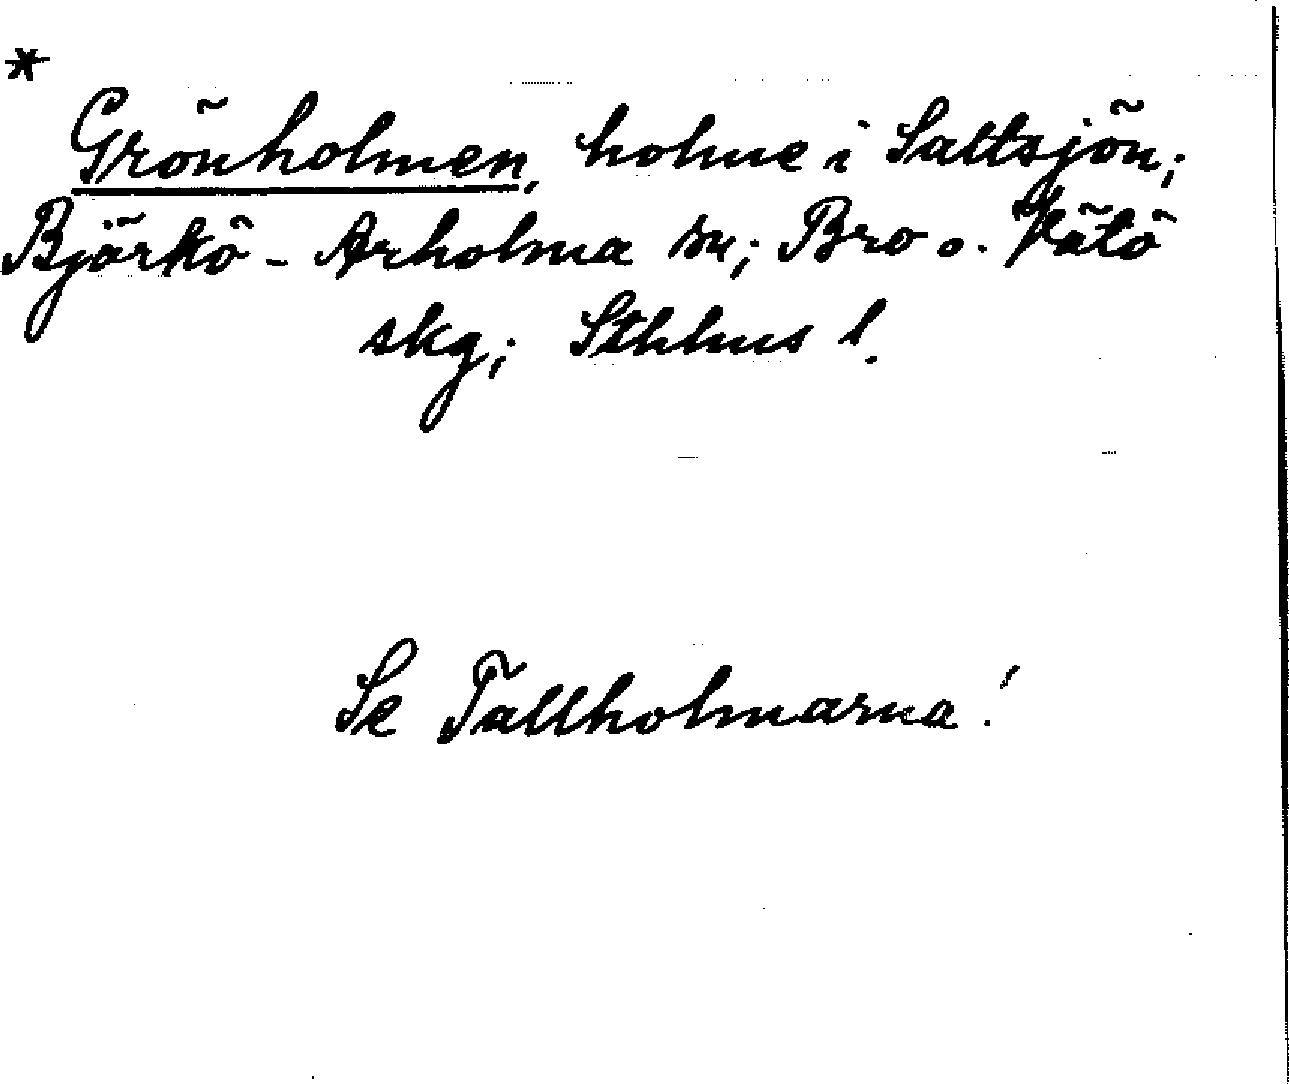 *
Grönholmen, holme i Saltsjön;
Björkö - Arholma sn; Bro o. Vätö
skg; Sthlms l.
Se Tallholmarna!